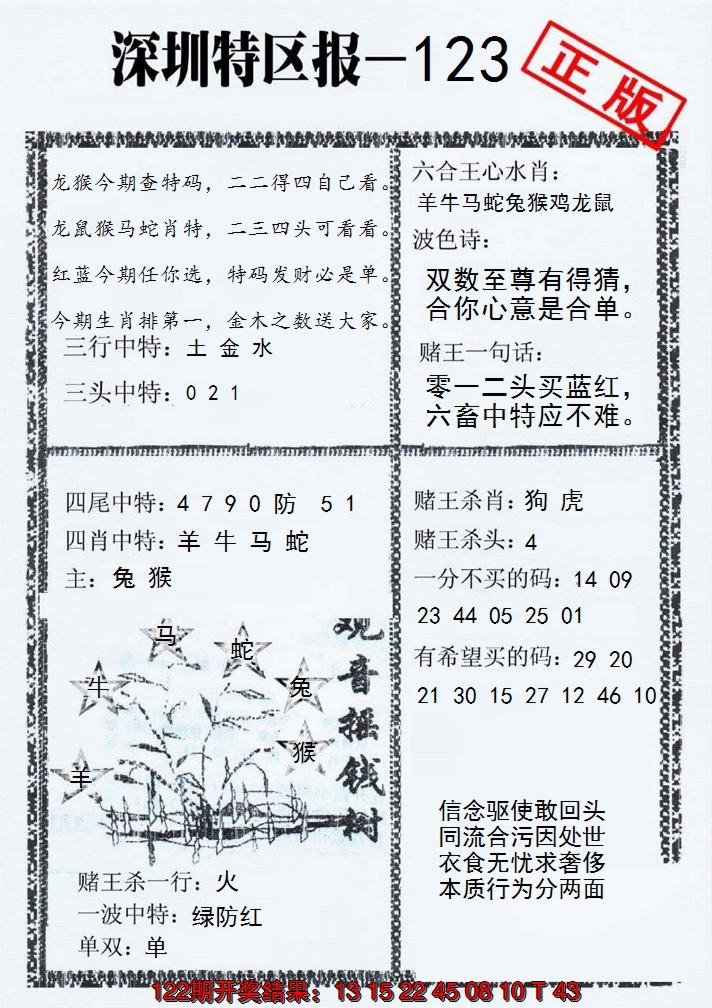 深圳特区报—123
正版
龙猴今期查特码，二二得四自己看。
龙鼠猴马蛇肖特，二三四头可看看。
红蓝今期任你选，特码发财必是单。
今期生肖排第一，金木之数送大家。
三行中特：土 金 水
三头中特：0 2 1
六合王心水肖：
羊牛马蛇兔猴鸡龙鼠
波色诗：
双数至尊有得猜，
合你心意是合单。
赌王一句话：
零一二头买蓝红，
六畜中特应不难。
四尾中特：4 7 9 0 防 5 1
四肖中特：羊 牛 马 蛇
主：兔 猴
马
蛇
牛
兔
猴
羊
观音摇钱树
赌王杀一行：火
一波中特：绿防红
单双：单
赌王杀肖：狗 虎
赌王杀头：4
一分不买的码：14 09
23 44 05 25 01
有希望买的码：29 20
21 30 15 27 12 46 10
信念驱使敢回头
同流合污因处世
衣食无忧求奢侈
本质行为分两面
122期开奖结果：13 15 22 45 08 10 T 43